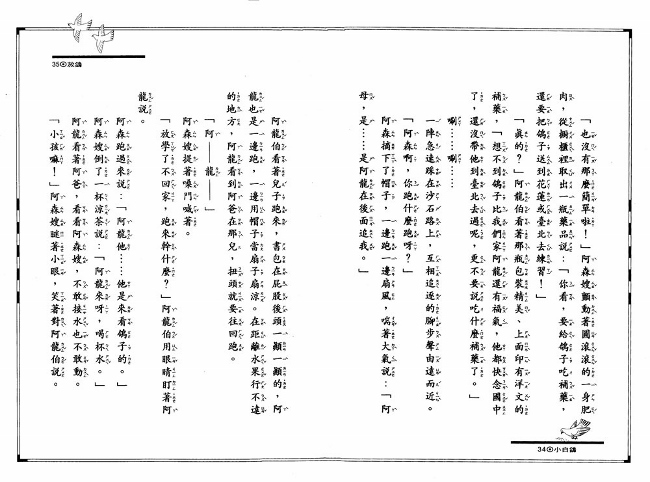 「也沒有那麼簡單啦！」阿森嫂顫動著圓滾滾的一身肥
肉，從櫥櫃裡取出一瓶藥品說：「你看，要給鴿子吃補藥，
還要把鴿子送到花蓮或臺北去練習！」
「真的？」阿龍伯看著那瓶包裝精美、上面印有洋文的
補藥，「想不到鴿子比我們家阿龍還有福氣，他都快念國中
了，還沒帶他到臺北去過呢，更不要說吃什麼補藥了。」
唰……唰……
一陣急速踩在沙石路上，互相追逐的腳步聲由遠而近。
「阿森啊，你跑什麼跑呀？」
阿森摘下了帽子，一邊跑一邊扇風，喘著大氣說：「阿
母，是……是阿龍在後面追我。」
34小白鴿
35放鴿
阿龍伯看著兒子跑來，書包在屁股後頭一顛一顛的，阿
龍也是一邊跑，一邊用帽子當扇子扇涼。在距離水果行不遠
的地方，阿龍看到阿爸在那兒，扭頭就要往回跑。
「阿——龍——」
阿森嫂提著嗓門喊著。
「放學了不回家，跑來幹什麼？」阿龍伯用眼睛盯著阿
龍說。
阿森跑過來說：「阿龍他……他是來看鴿子的。」
阿森嫂倒了一杯涼茶說：「阿龍來呀，喝杯水。」
阿龍看著阿爸，看看阿森嫂，不敢接水也不敢動。
「小孩嘛！」阿森嫂瞇著小眼，笑著對阿龍伯說。